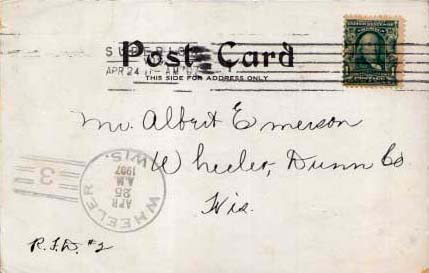 SUPERIOR
APR 24 11-AM '07
Post Card
THIS SIDE FOR ADDRESS ONLY
Mr. Albert Emerson
Wheeler, Dunn Co
Wis.
WHEELER WIS.
APR
25
A.M.
1907
3
R.F.D. #2